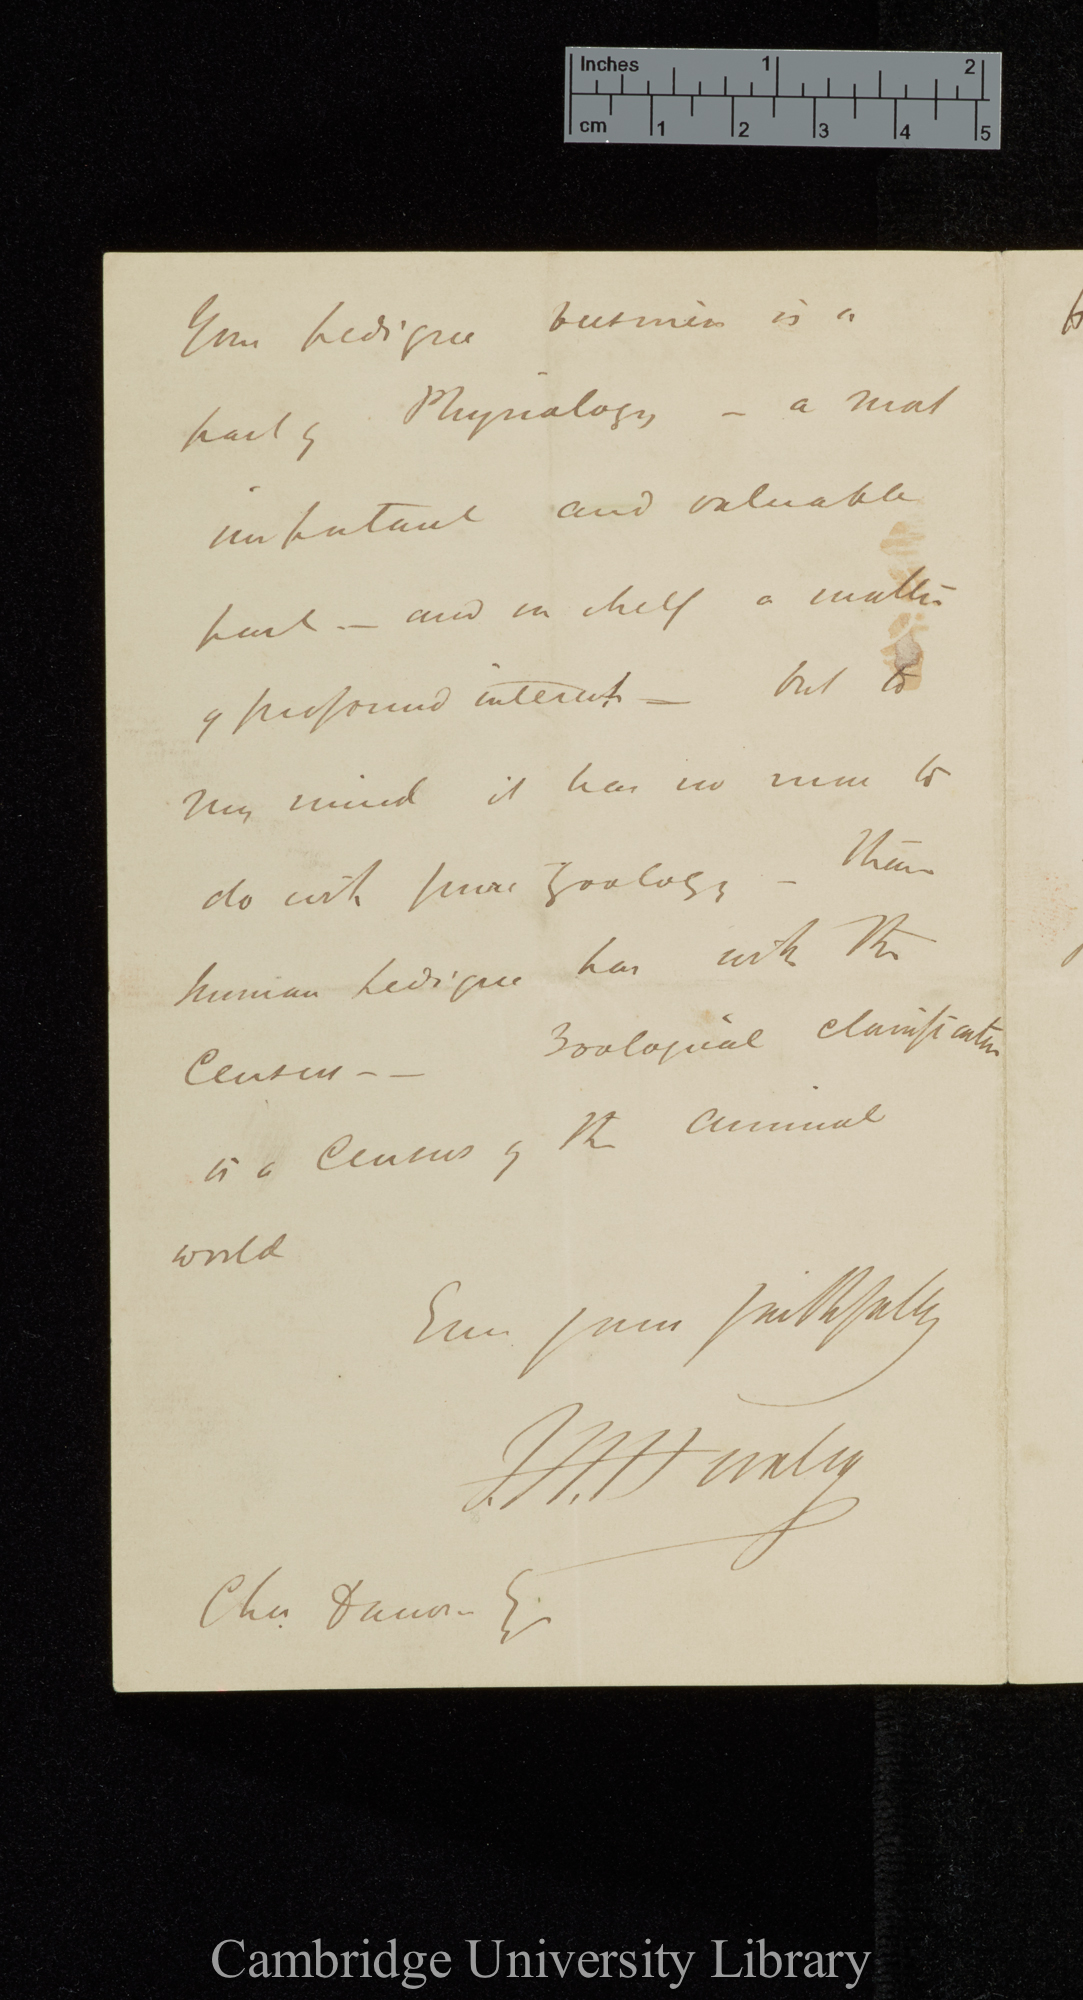 Inches 1 2
cm 1 2 3 4 5
Your pedigree business is a
part of Physiology – a most
important and valuable
part – and in itself a matter
of profound interest – but to
my mind it has no more to
do with pure Zoology – than
human pedigree has with the
Census – – Zoological classification
is a Census of the animal
world
Ever yours faithfully
T.H. Huxley
Chas. Darwin Esq
Cambridge University Library